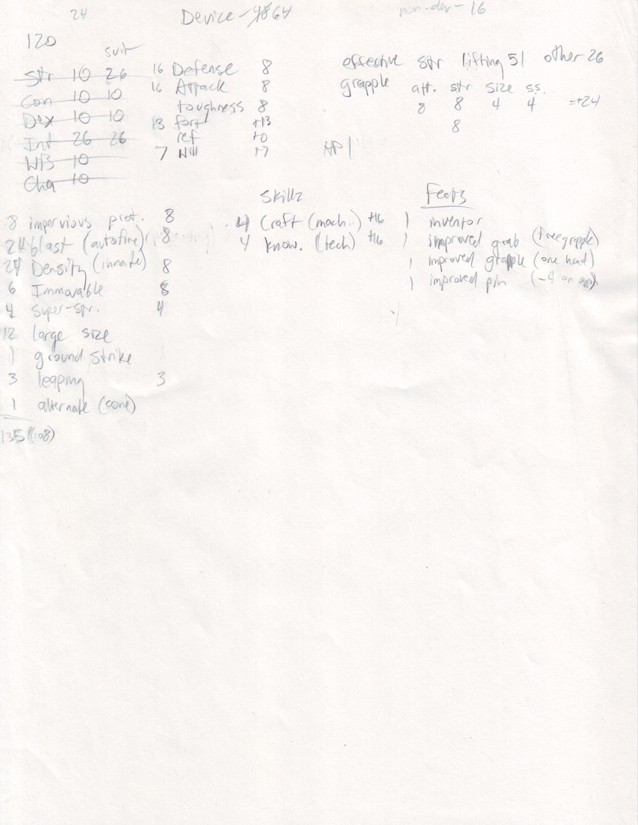 24
Device - 64
non-dev - 16
120
suit
Str 10 26
Con 10 10
Dex 10 10
Int 26 26
Wis 10
Cha 10
16 Defense 8
16 Attack 8
toughness 8
13 fort +13
ref +0
7 Will +7
effective str lifting 51 other 26
grapple att. str size ss.
8 8 4 4 =+24
8
HP 1
8 impervious prot. 8
24 blast (autofire) 8
24 Density (innate) 8
6 Immovable 8
4 super-str. 4
12 large size
1 ground strike
3 leaping 3
1 alternate (cone)
135 (108)
Skillz
4 Craft (mach.) +16
4 know. (tech) +16
Feats
1 inventor
1 improved grab (free grapple)
1 improved grapple (one hand)
1 improved pin (-4 on